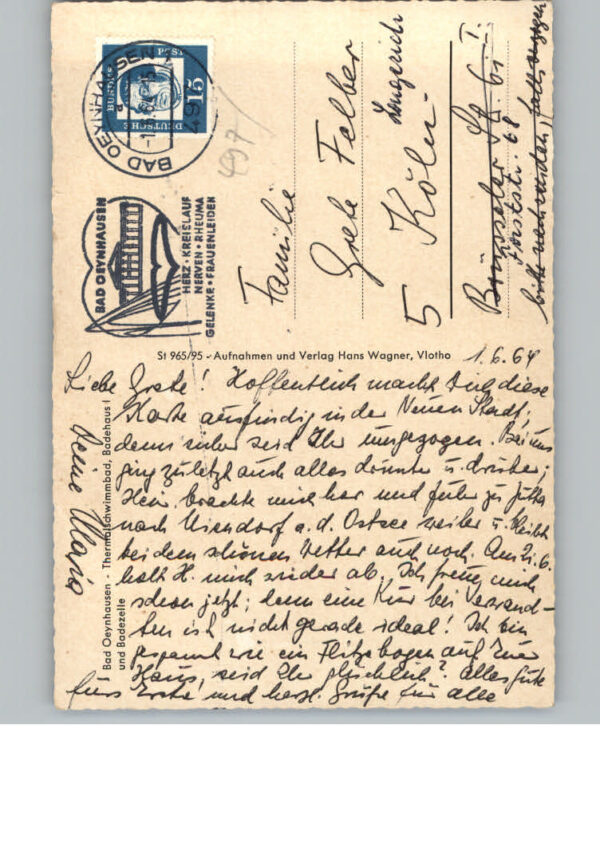 BAD OEYNHAUSEN
DEUTSCHE
BUNDES
POST
15
497/
BAD OEYNHAUSEN
HERZ · KREISLAUF
NERVEN · RHEUMA
GELENKE · FRAUENLEIDEN
Familie
Grete Felber
5 Köln-
Longerich
Brüsseler
Forststr. 68
bitte nachsenden, falls
St 965/95 - Aufnahmen und Verlag Hans Wagner, Vlotho
Bad Oeynhausen - Thermalschwimmbad, Badehaus I
und Badezelle
1.6.64
Liebe Grete! Hoffentlich macht Dich diese
Karte ausfindig in der Neuen Stadt,
denn sicher seid Ihr umgezogen. Bei uns
ging zuletzt auch alles drunter u. drüber;
Hein brachte mich her und fuhr zu
nach a. d. Ostsee weiter u. bleibt
bei dem schönen Wetter auch noch. Am 21.6.
holt H. mich wieder ab. Ich freue mich
schon jetzt; denn eine Kur bei Verwand-
ten ist nicht gerade ideal! Ich bin
gespannt wie ein Flitzebogen auf Euer
Haus, seid Ihr glücklich? Alles Gute
fürs Erste und herzl. Grüße für alle
Deine Maria